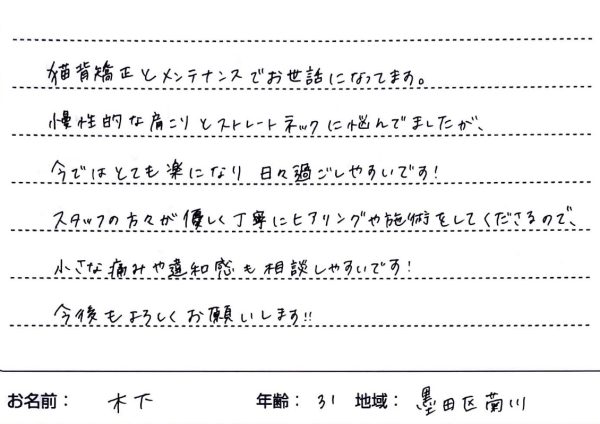 猫背矯正とメンテナンスでお世話になってます。
慢性的な肩こりとストレートネックに悩んでましたが、
今ではとても楽になり 日々過ごしやすいです!
スタッフの方々が優しく丁寧にヒアリングや施術をしてくださるので、
小さな痛みや違和感も相談しやすいです!
今後もよろしくお願いします!!
お名前： 木下 年齢： 31 地域： 墨田区菊川